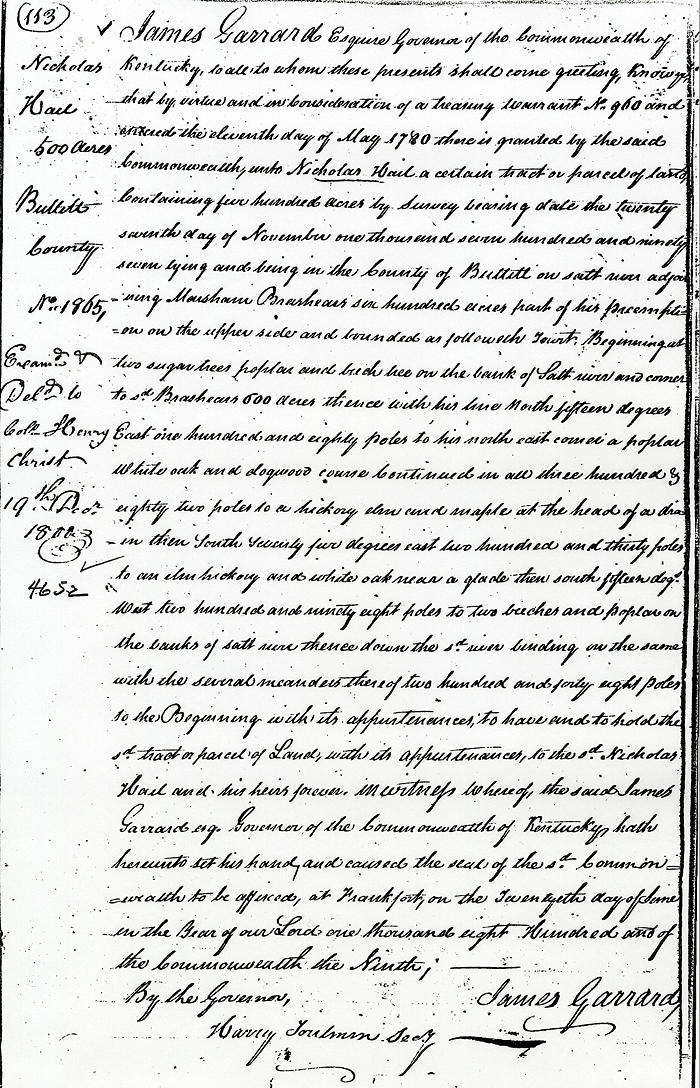 113
Nicholas
Hail
500 Acres
Bullitt
County
No. 1865,
Examd. &
Deld. to
Colo. Henry
Christ
19th Decr.
1800
4652
James Garrard Esquire Governor of the Commonwealth of
Kentucky, to all to whom these presents shall come greeting, Know ye
that by virtue and in consideration of a treasury warrant No. 960 and
entered the eleventh day of May 1780 there is granted by the said
Commonwealth, unto Nicholas Hail a certain tract or parcel of land,
Containing five hundred acres by Survey bearing date the twenty
seventh day of November one thousand seven hundred and ninety
seven lying and being in the County of Bullitt on salt river adjoi
-ning Marsham Brashears six hundred acres part of his Preempti
=on on the upper side and bounded as followeth Towit. Beginning at
two sugartrees poplar and beech tree on the bank of Salt river and corner
to sd. Brashears 600 acres thence with his line North fifteen degrees
East one hundred and eighty poles to his north east corner a poplar
White oak and dogwood course Continued in all three hundred &
eighty two poles to a hickory elm and maple at the head of a dra
-in then South Seventy five degrees east two hundred and thirty poles
to an elm hickory and white oak near a glade then south fifteen degs.
West two hundred and ninety eight poles to two beeches and poplar on
the banks of salt river thence down the sd. river binding on the same
with the several meanders thereof two hundred and forty eight poles
to the Beginning with its appurtenances, to have and to hold the
sd. tract or parcel of Land, with its appurtenances, to the sd. Nicholas
Hail and his heirs forever. In witness whereof, the said James
Garrard esq. Governor of the Commonwealth of Kentucky, hath
hereunto set his hand, and caused the seal of the sd. Common=
=wealth to be affixed, at Frankfort, on the Twentyeth day of June
in the Year of our Lord one thousand eight Hundred and of
the Commonwealth the Ninth;
By the Governor,
James Garrard,
Harry Toulmin Secy